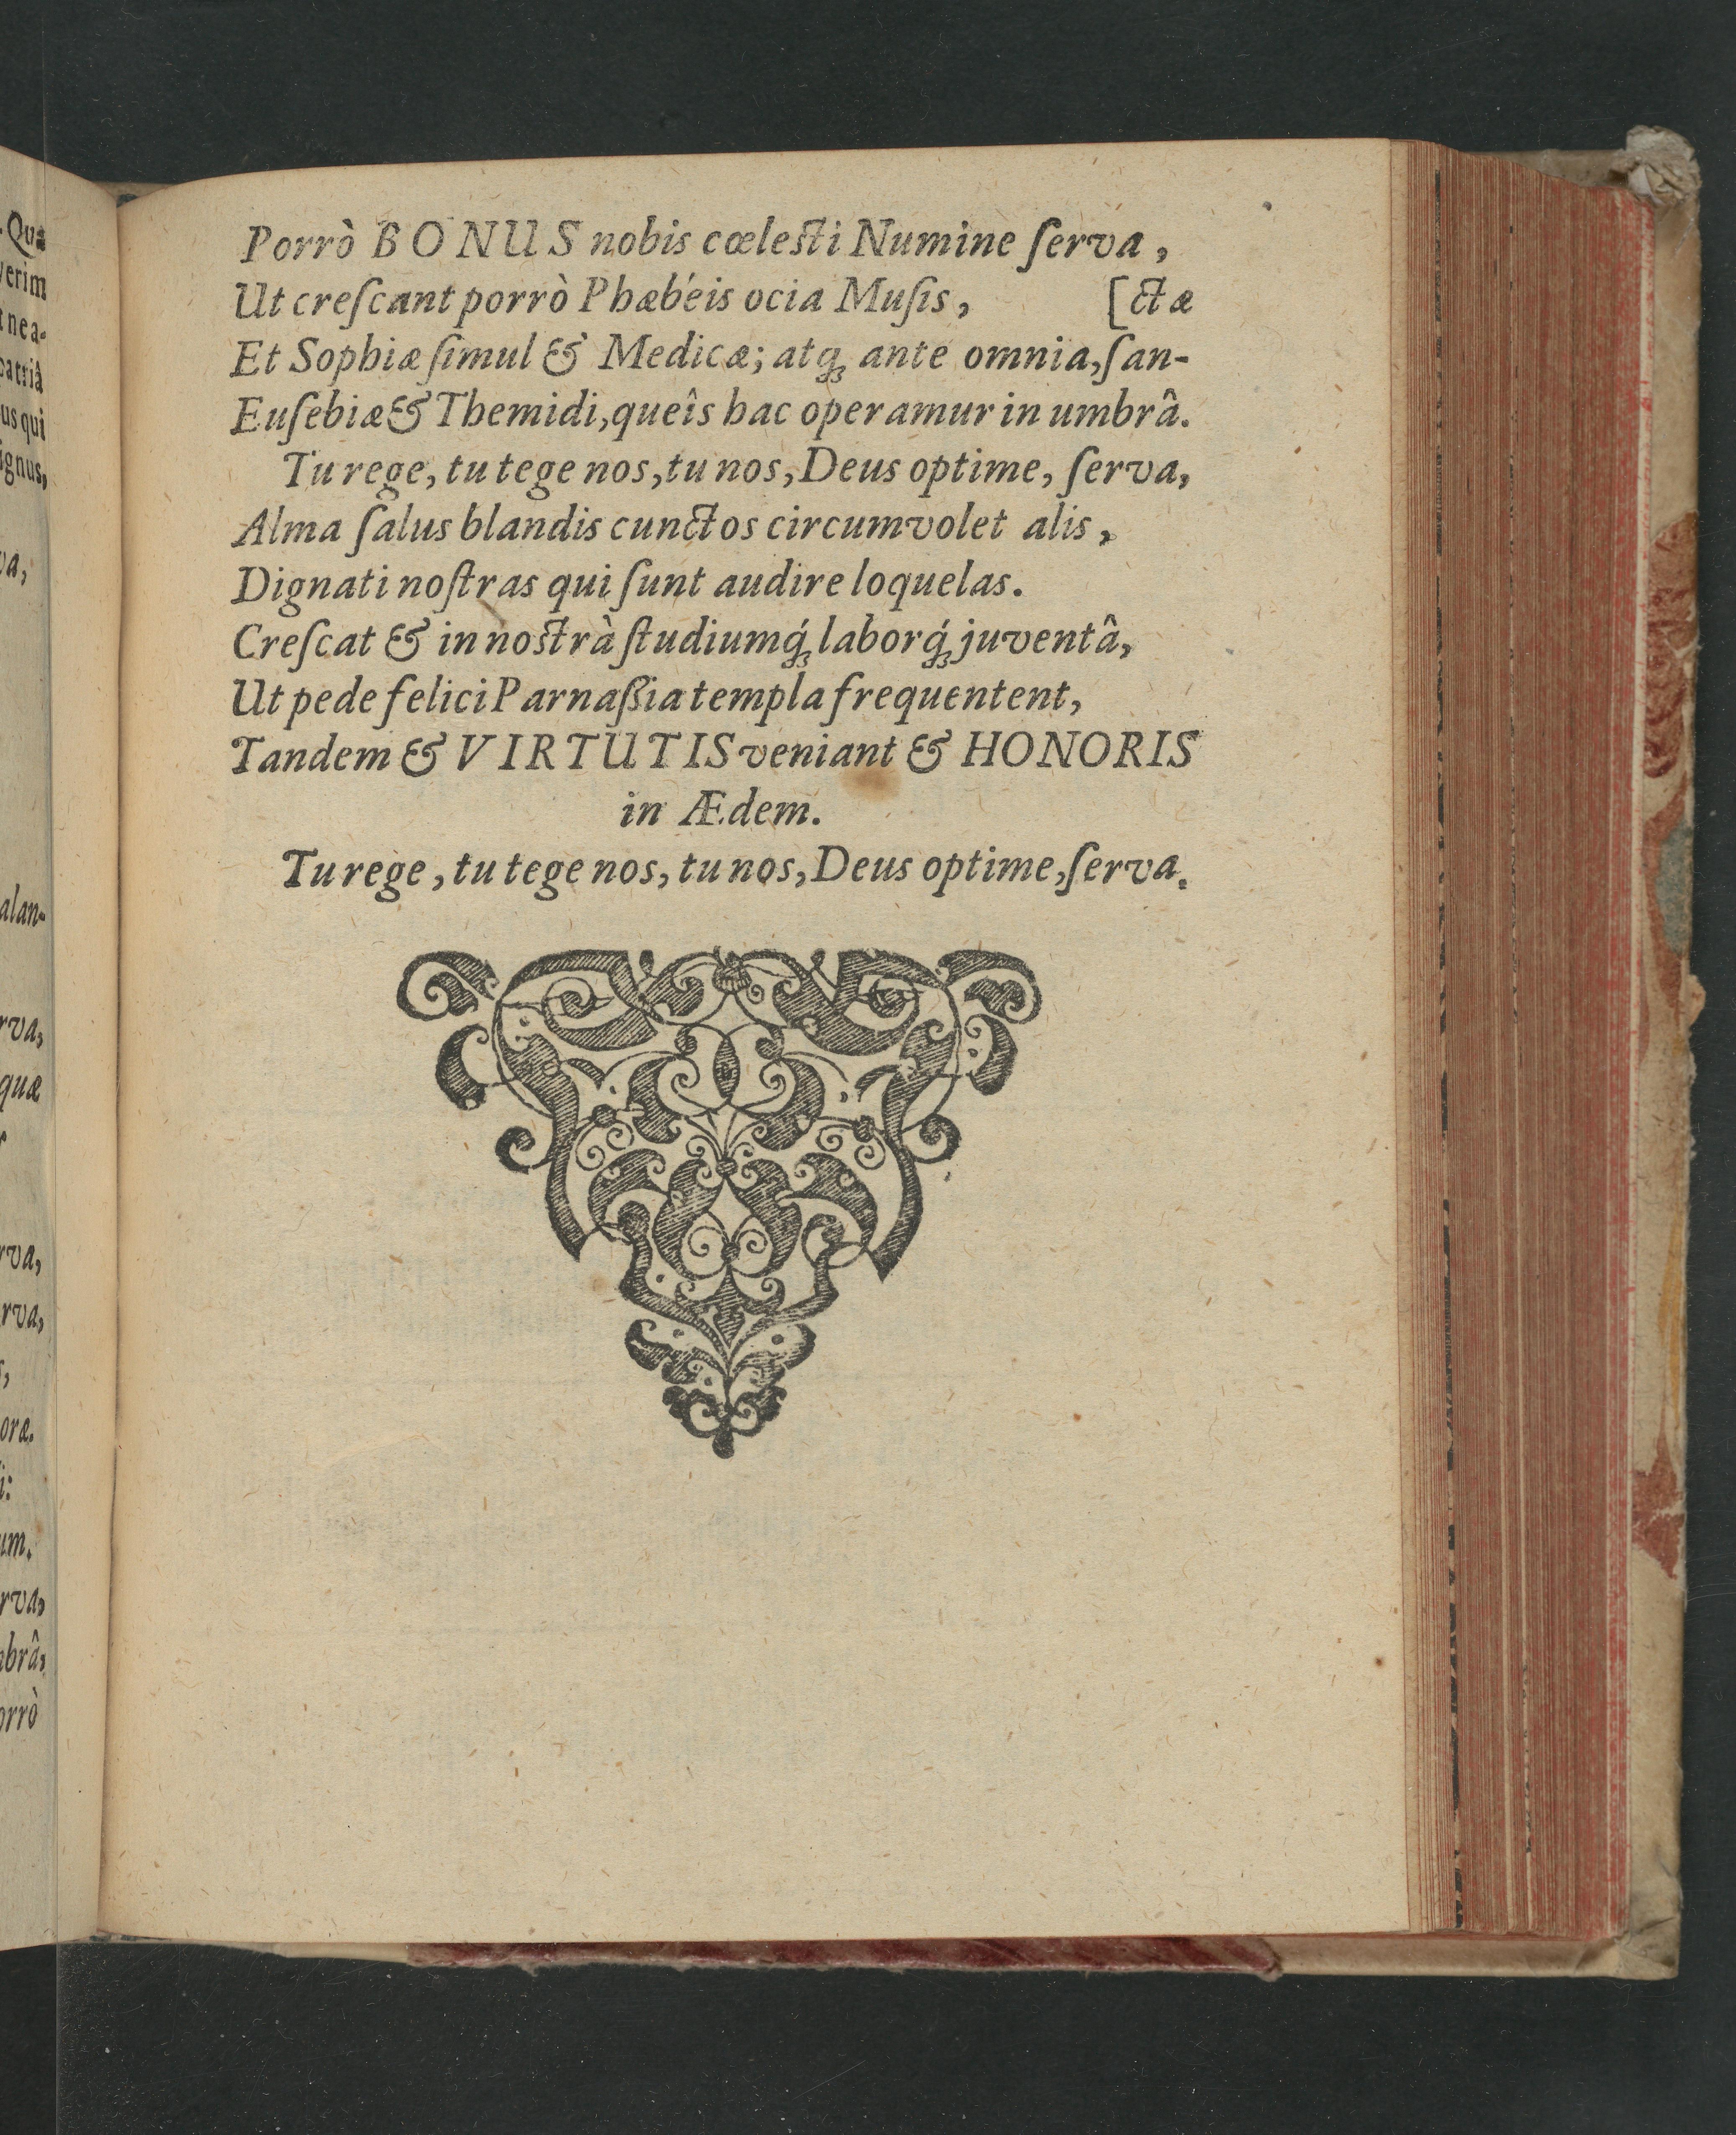 Porrò BONUS nobis cœlesti Numine ſerva,
Ut creſcant porrò Phæbéis ocia Muſis, [ctæ
Et Sophiæ ſimul & Medicæ; atqꝫ ante omnia, ſan-
Euſebiæ & Themidi, queîs hac operamur in umbrâ.
Tu rege, tu tege nos, tu nos, Deus optime, ſerva,
Alma ſalus blandis cunctos circumvolet alis,
Dignati noſtras qui ſunt audire loquelas.
Creſcat & in noſtrà ſtudiumq́ꝫ laborq́ꝫ juventâ,
Ut pede felici Parnaßia templa frequentent,
Tandem & VIRTUTIS veniant & HONORIS
in Ædem.
Tu rege, tu tege nos, tu nos, Deus optime, ſerva.